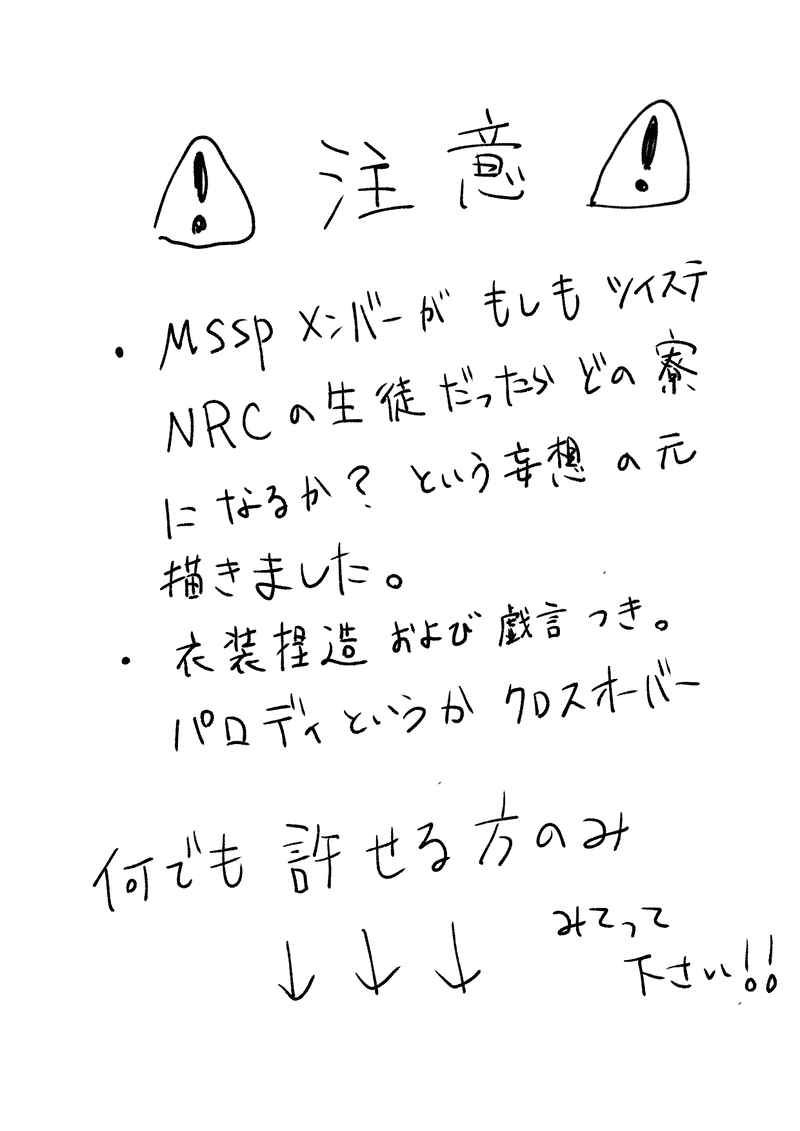 注意
・MSSP メンバーが もしも ツイステ
NRCの生徒だったら どの寮
になるか？ という妄想の元
描きました。
・衣装捏造 および 戯言つき。
パロディというか クロスオーバー
何でも許せる方のみ
↓ ↓ ↓
みてって
下さい!!